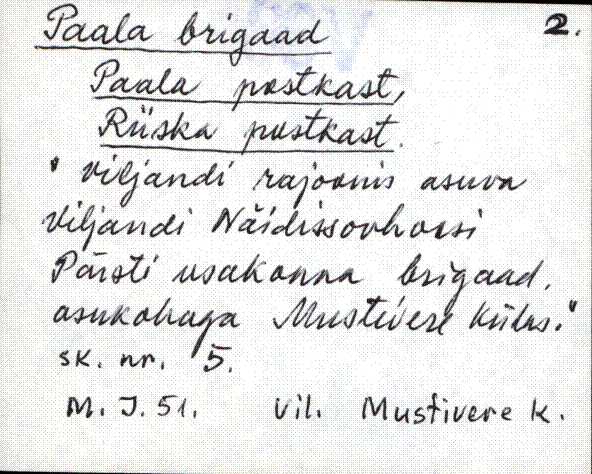 2.
Paala brigaad
Paala postkast,
Riiska postkast.
" Viljandi rajoonis asuva
Viljandi Näidissovhoosi
Päisti usakonna brigaad,
asukohaga Mustivere külas."
sk. nr. 5.
M. J. 51. Vil. Mustivere k.